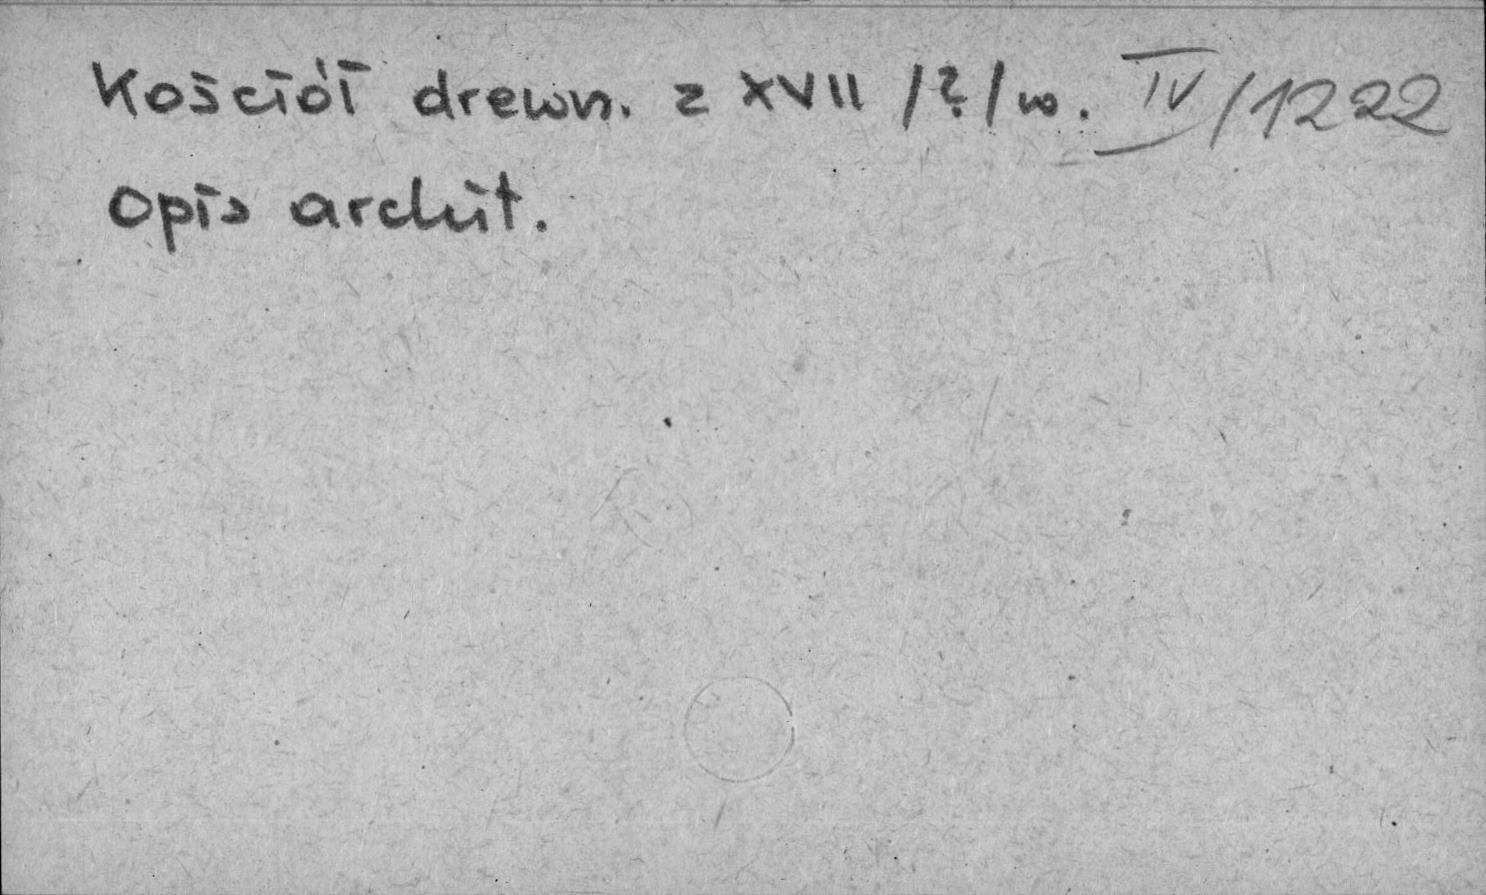 Kościół drewn. z XVII /?/ w. IV/1222
opis archit.